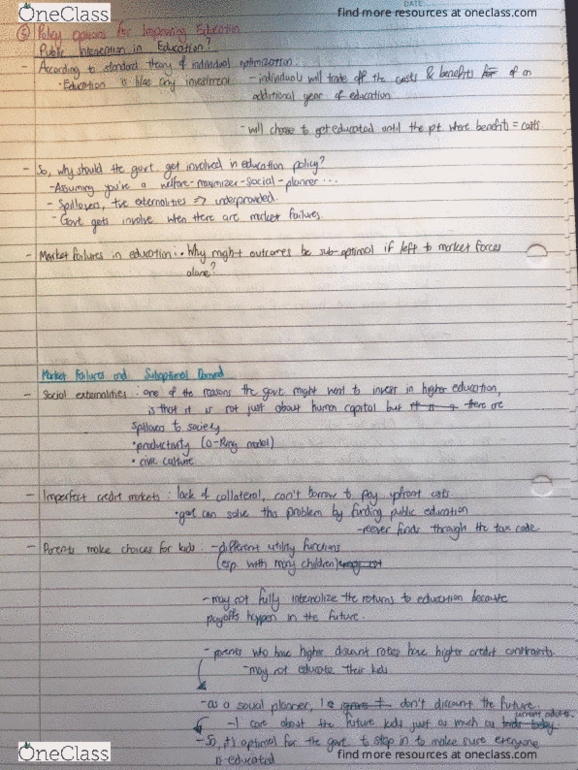 OneClass
DATE
find more resources at oneclass.com
⑤ Policy options for Improving Education
Public Intervention in Education?
- According to standard theory of individual optimization:
· Education is like any investment - individual will trade off the costs & benefits of an
additional year of education
- will chose to get educated until the pt where benefits = costs
- So, why should the govt get involved in education policy?
- Assuming you're a welfare-maximizer-social-planner ...
- Spillovers, +ve externalities => underprovided.
- Govt gets involve when there are market failures.
- Market failures in education: · Why might outcomes be sub-optimal if left to market forces
alone?
Market Failures and Suboptimal Demand
- Social externalities : one of the reasons the govt might want to invest in higher education,
is that it is not just about human capital but it is a there are
spillovers to society
· productivity (O-Ring model)
· civic culture
- Imperfect credit markets : lack of collateral, can't borrow to pay upfront costs
· govt can solve this problem by funding public education
- recover funds through the tax code
- Parents make choices for kids : - different utility functions
(esp. with many children)
- may not fully internalize the returns to education because
payoffs happen in the future.
- parents who have higher discount rates have higher credit constraints.
- may not educate their kids
- as a social planner, I don't discount the future.
current adults.
- I care about the future kids just as much as kids today
- So, it's optimal for the govt to step in to make sure everyone
is educated
OneClass
find more resources at oneclass.com